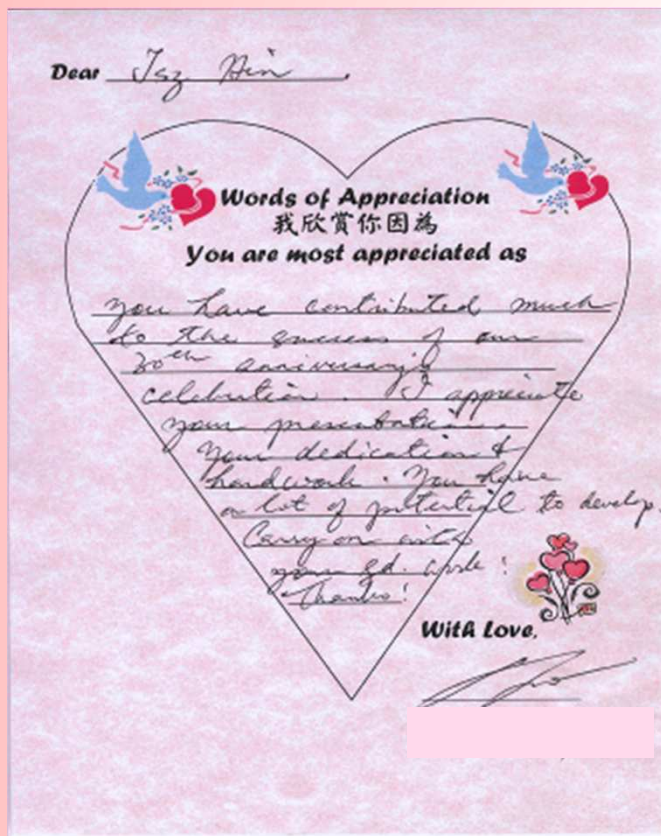 Dear Tsz Hin,
Words of Appreciation
我欣賞你因為
You are most appreciated as
you have contributed much
to the success of our
30th anniversary
celebration. I appreciate
your presentation.
Your dedication &
hardwork. You have
a lot of potential to develop.
Carry on with
your gd. work!
Thanks!
With Love,